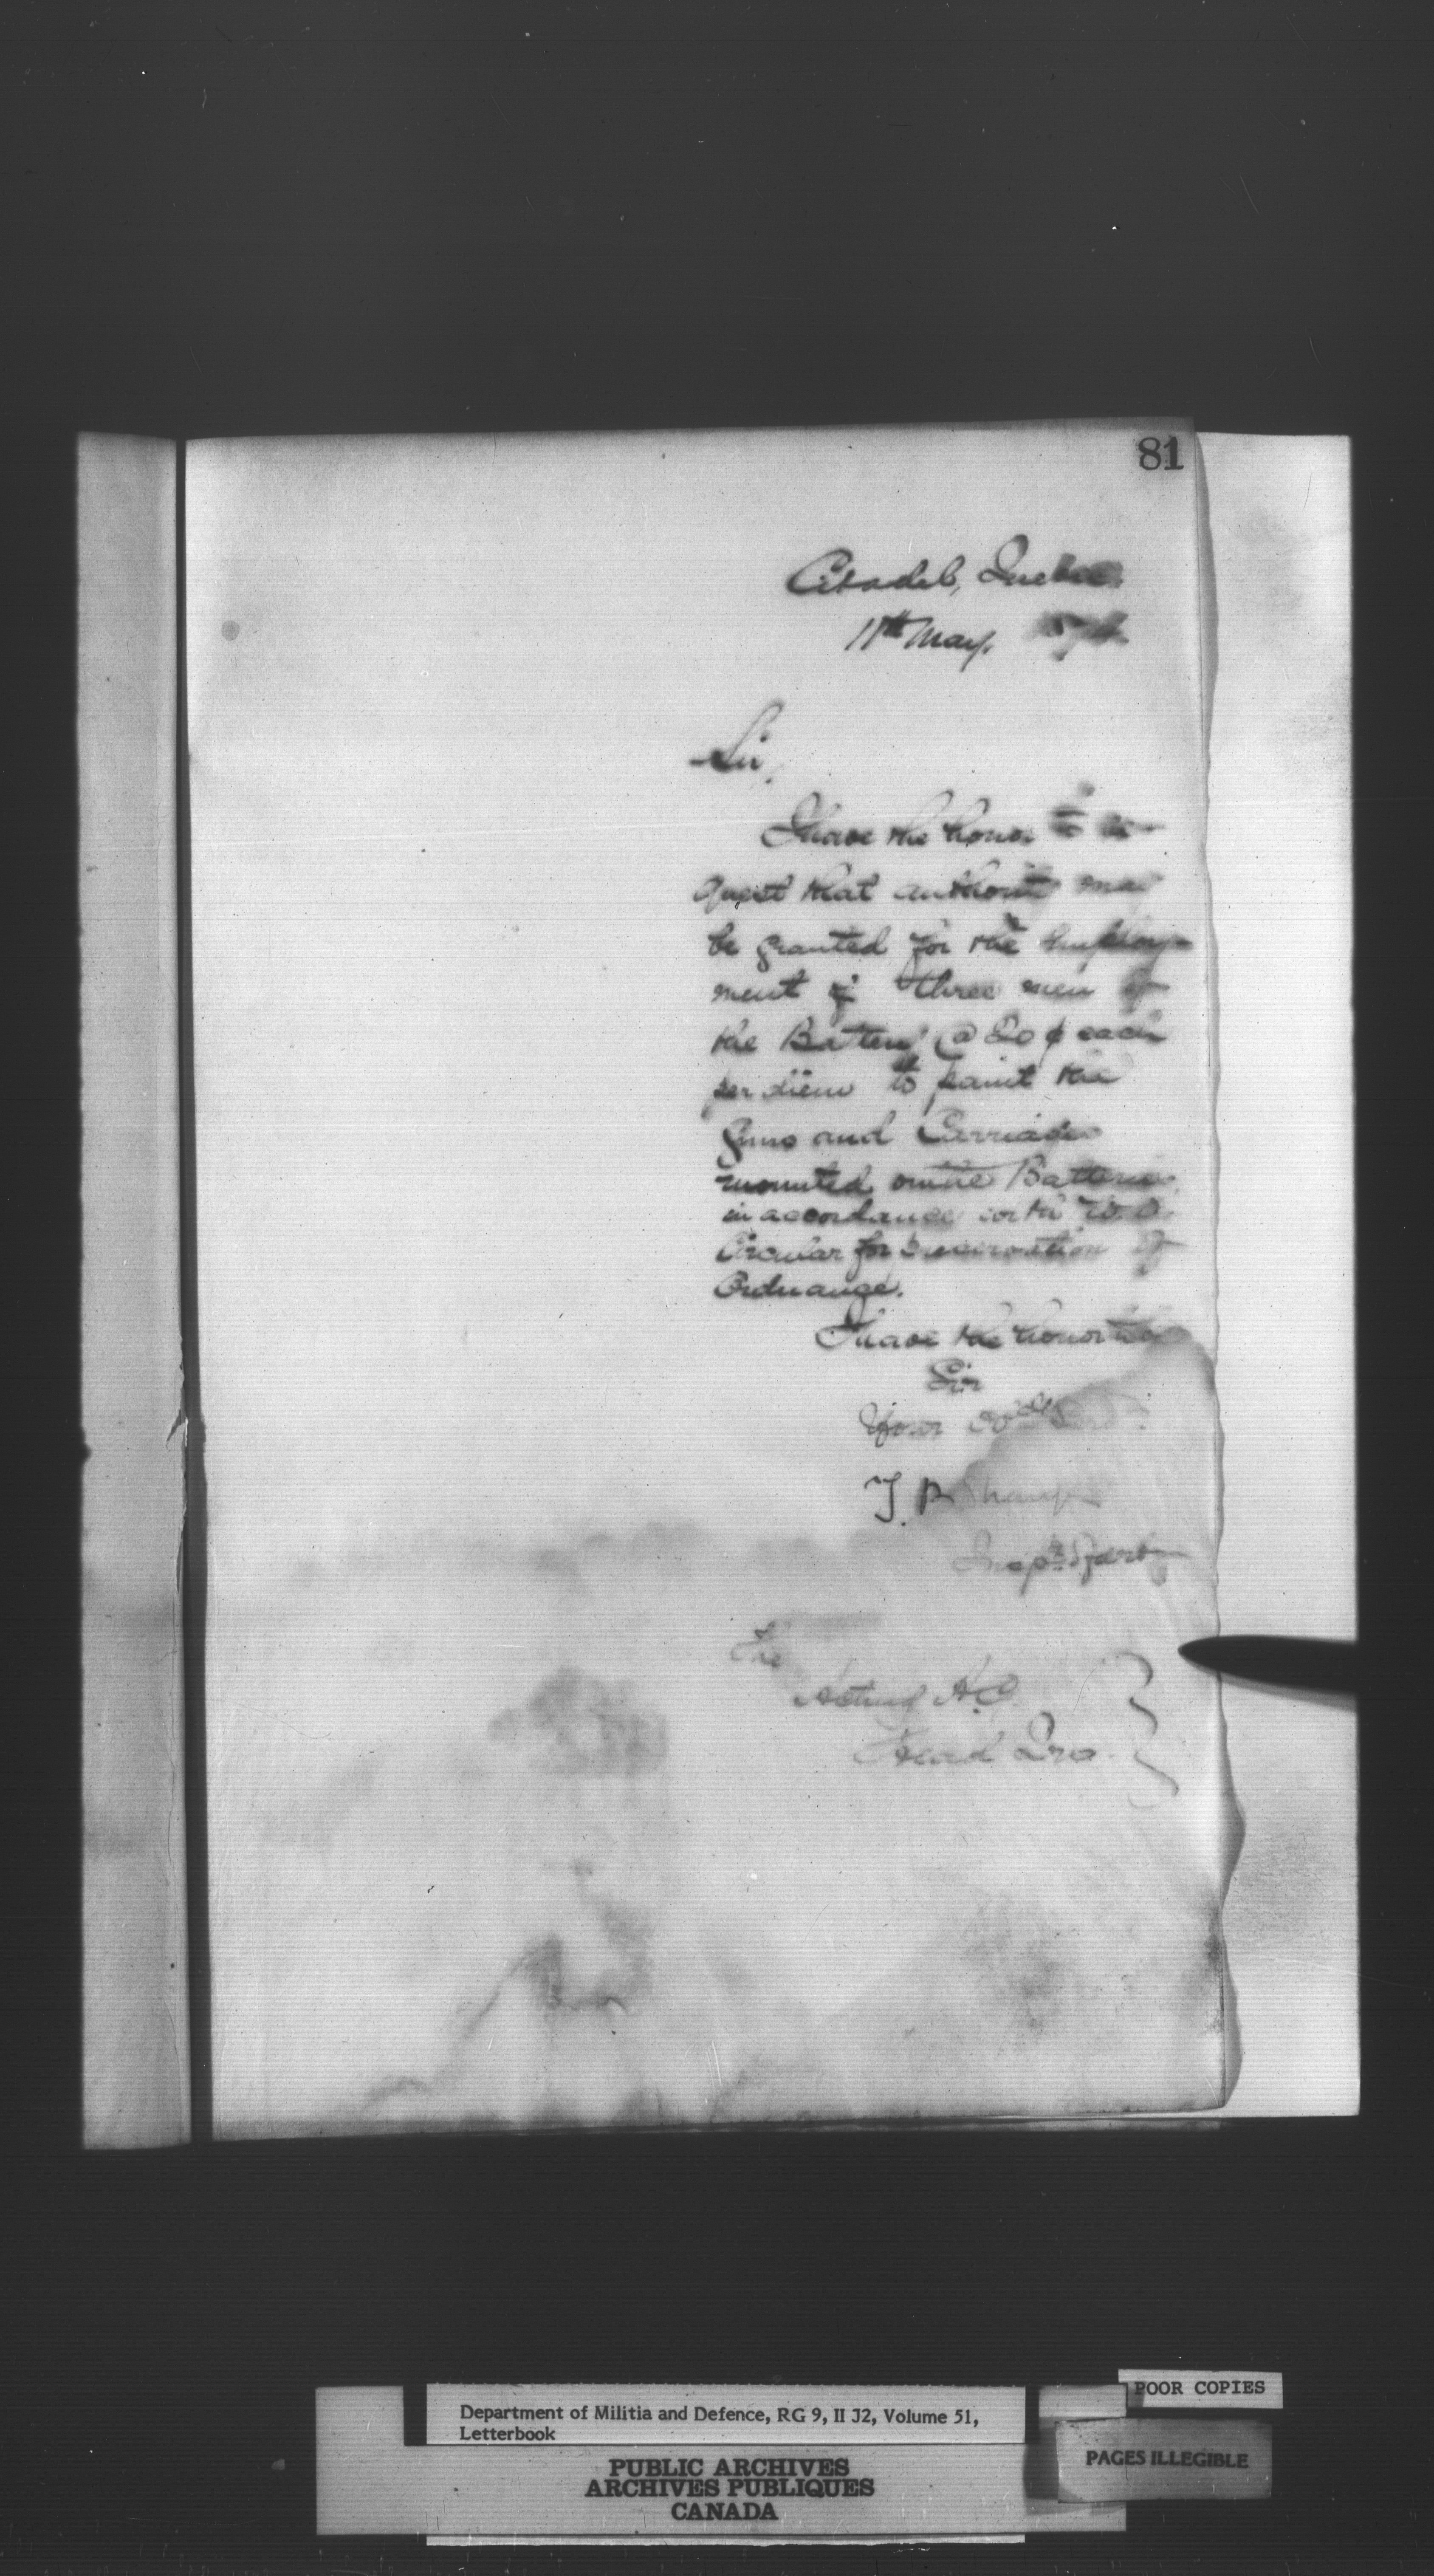 81
Citadel, Quebec
11th May,
Sir,
I have the honor to re-
quest that authority may
be granted for the employ-
ment of three men of
the Battery @ 20 ¢ each
per diem to paint the
Guns and Carriages
mounted on the Batteries
in accordance with W.O.
Circular for preservation of
Ordnance.
I have the honor to be
Sir
Your
T. B.
The
Acting A.
Head Qrs.
POOR COPIES
Department of Militia and Defence, RG 9, II J2, Volume 51,
Letterbook
PAGES ILLEGIBLE
PUBLIC ARCHIVES
ARCHIVES PUBLIQUES
CANADA